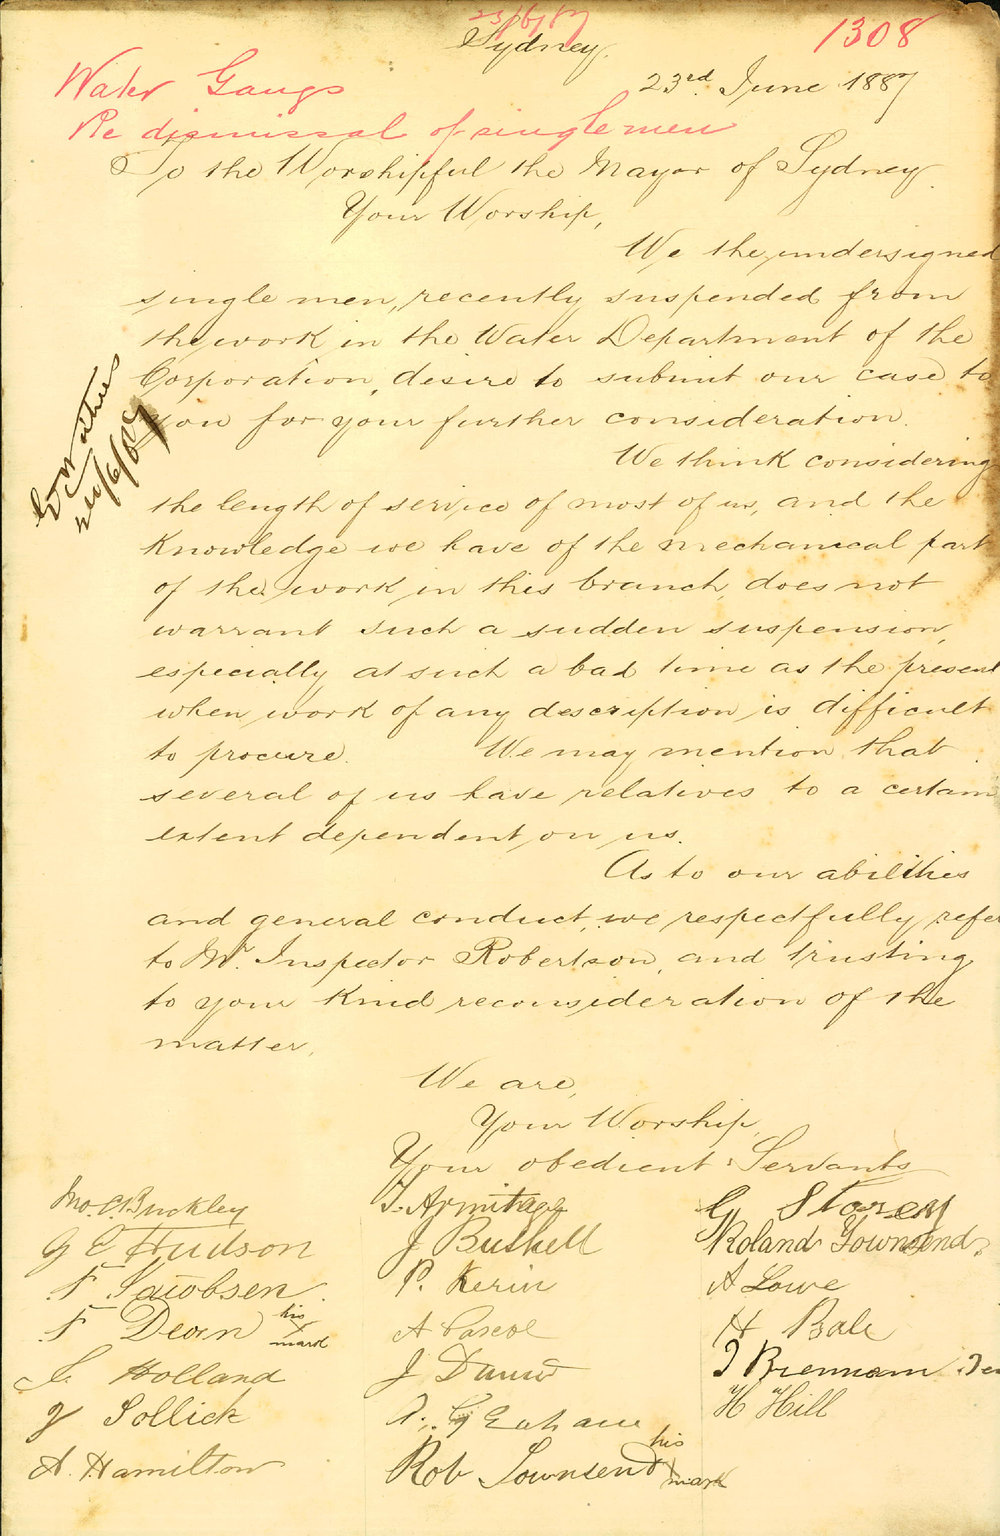 23/6/87
1308
Sydney.
23rd June 1887
Water Gangs
Re dismissal of single men
To the Worshipful the Mayor of Sydney.
Your Worship,
We the undersigned
single men, recently suspended from
the work in the Water Department of the
Corporation, desire to submit our case to
you for your further consideration.
We think considering
the length of service of most of us, and the
knowledge we have of the mechanical part
of the work in this branch, does not
warrant such a sudden suspension,
especially at such a bad time as the present
when work of any description is difficult
to procure. We may mention that
several of us have relatives to a certain
extent dependent on us.
As to our abilities
and general conduct, we respectfully refer
to Mr. Inspector Robertson, and trusting
to your kind reconsideration of the
matter,
We are,
Your Worship,
Your obedient Servants
Jno. C. Buckley
G E Hudson
F Jacobsen
F Dean his x mark
C. Holland
J Sollick
A. Hamilton
T. Armitage
J Buskell
P. Kerin
A Pascoe
J Dunn
A. G Graham
Rob Townsend his x mark
G Storey
Roland Townsend
A Lowe
H Bale
T Brennan
H Hill